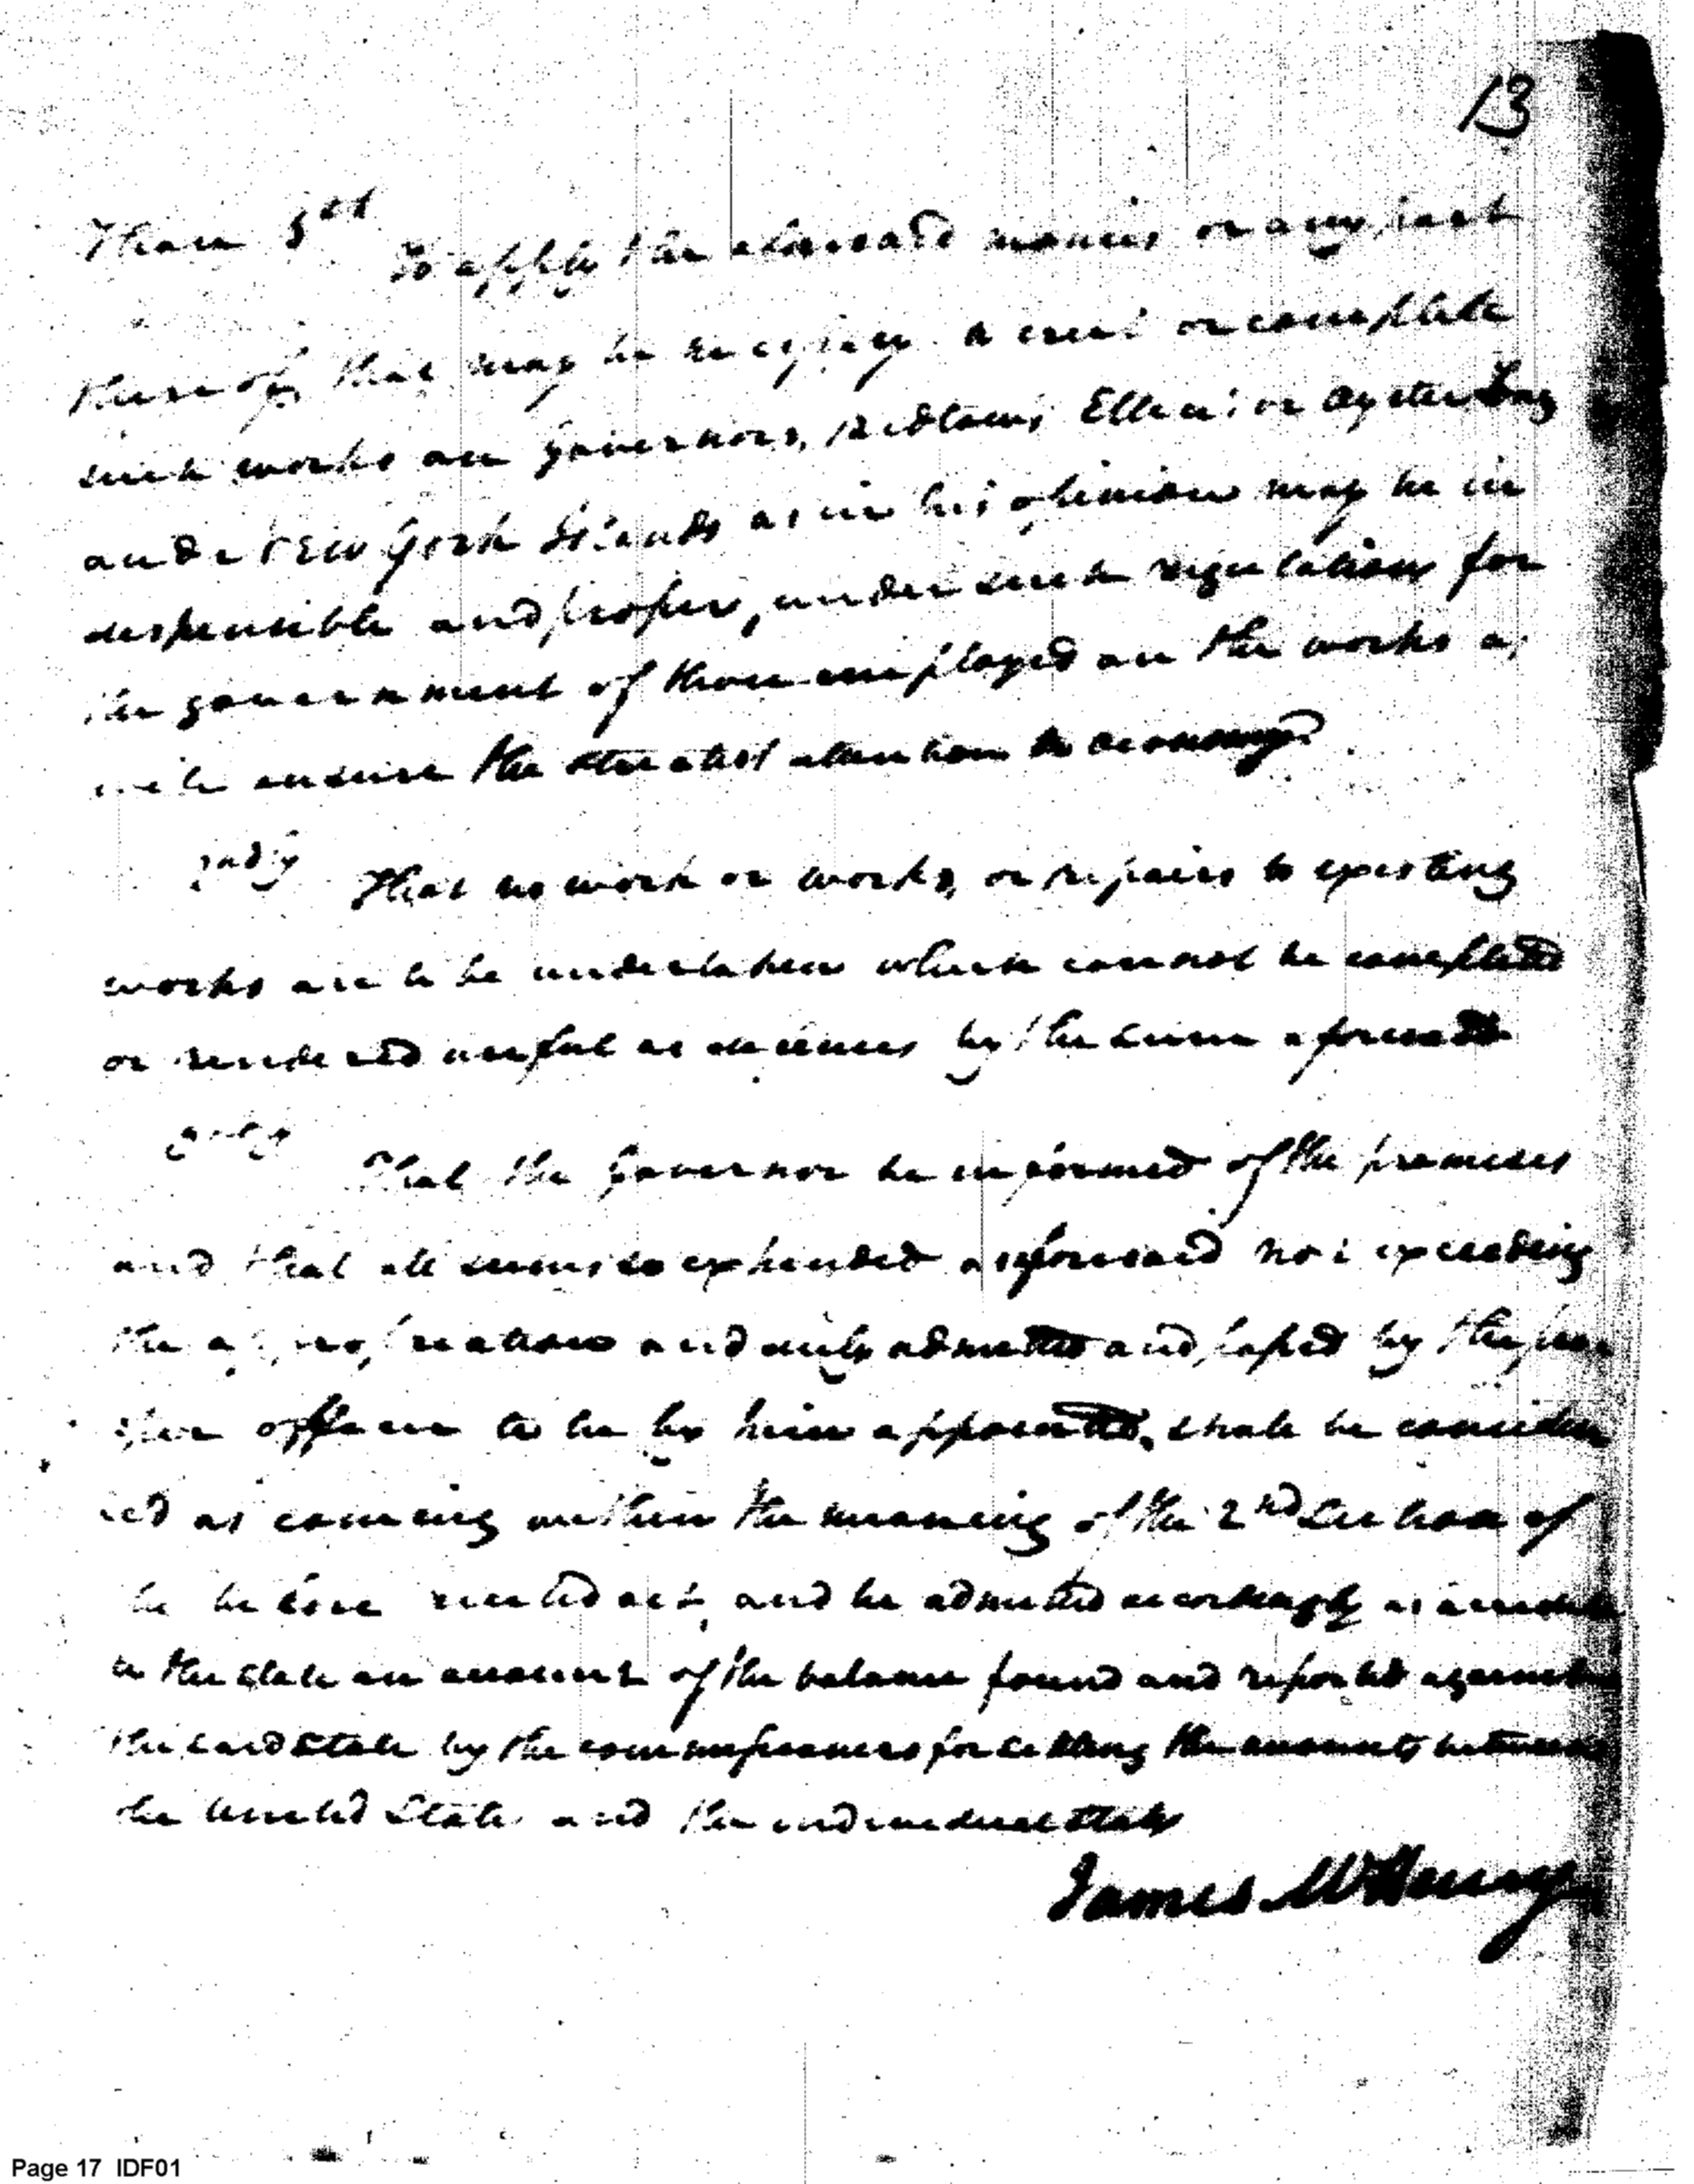 13
To apply the aforesaid monies or any part
thereof, that may be necessary to erect or complete
such works on Governors, Bedlows, Ellis's or Oyster
and New York Islands as in his opinion may be in
dispensible and proper, under such regulations for
the government of those employed on the works as
will ensure the attention to economy.
2ndly
That no work or works, or repairs to existing
works are to be undertaken which cannot be completed
or rendered useful as defences by the sum aforesaid
3rdly
That the Governor be informed of the premises
and that all sums so expended as aforesaid not exceeding
the appropriation and duly admitted and passed by the pro
per officer to be by him appointed, shall be consider
ed as coming within the meaning of the 2nd Section of
the before recited act, and be admitted accordingly as
to the State on account of the balance found and reported against
the said State by the commissioners for settling the accounts between
the United States and the individual States
James McHenry
Page 17 IDF01